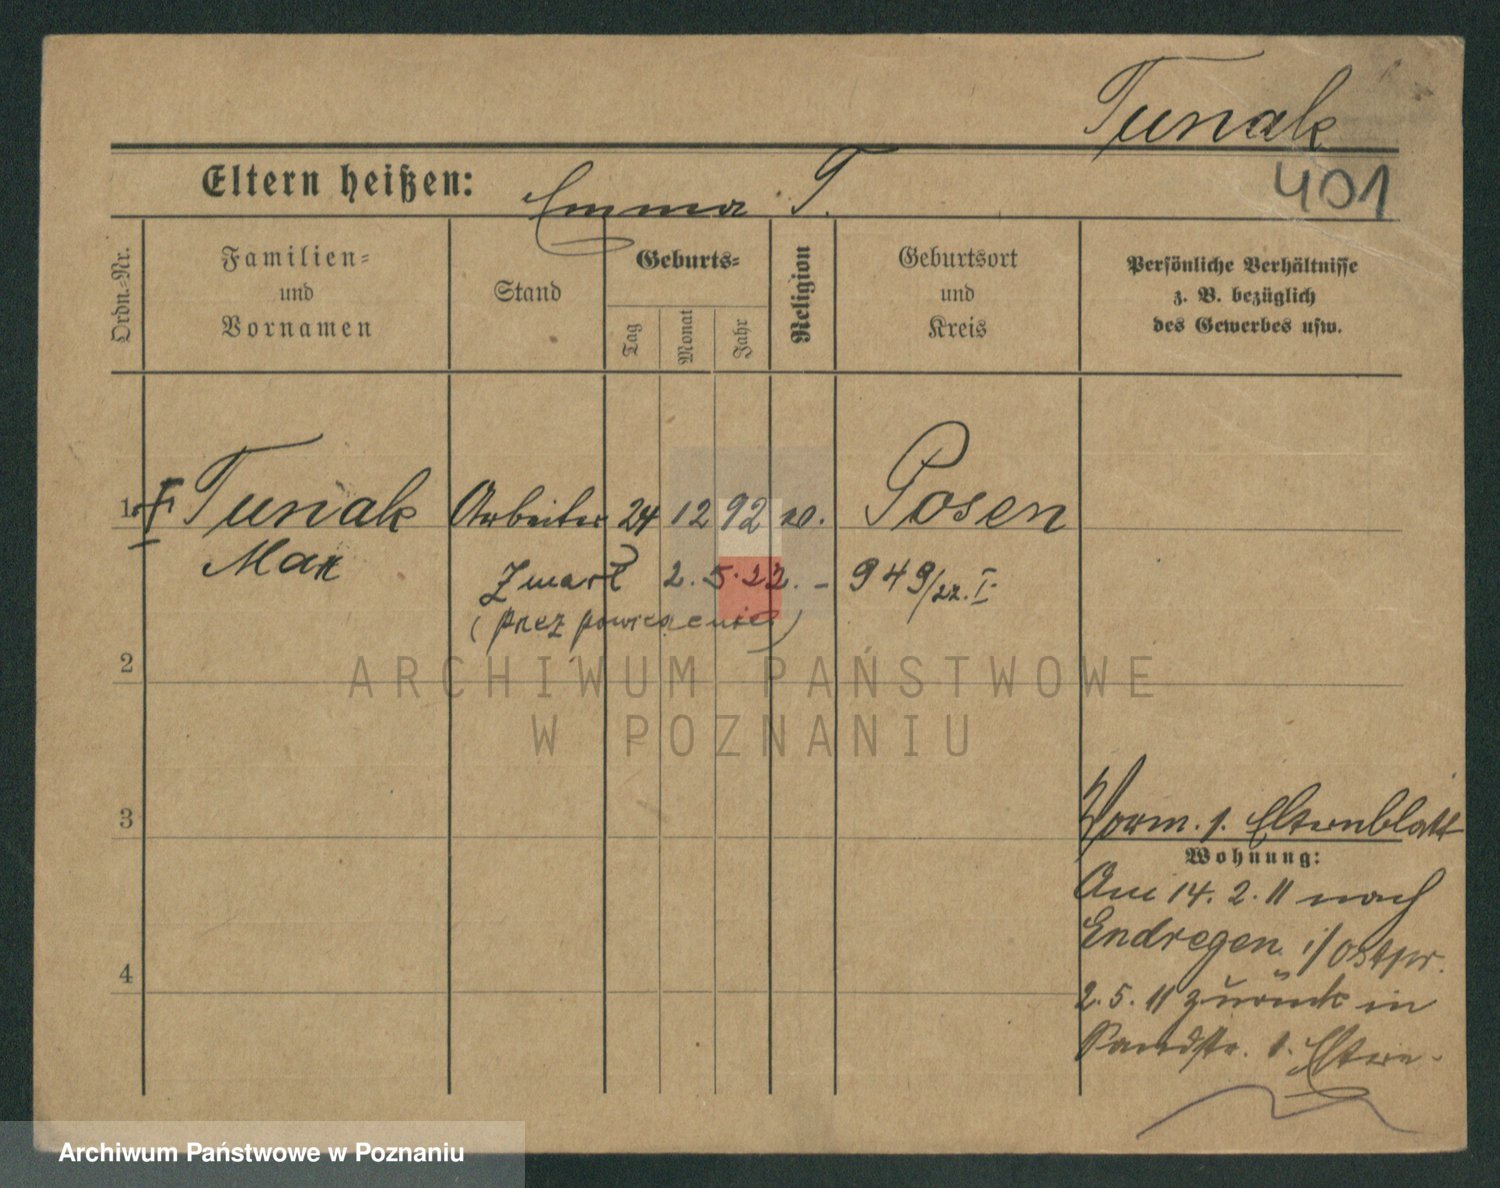 Tunak
401
Eltern heißen: Emma T.
Ordn.-Nr.
Familien-
und
Vornamen
Stand
Geburts-
Tag
Monat
Jahr
Religion
Geburtsort
und
Kreis
Persönliche Verhältnisse
z. B. bezüglich
des Gewerbes usw.
1. Tunak Arbeiter 24 12 92 Posen
Max
Zmarł 2. 5. 22. - 949/22. I.
(przez powieszenie)
2
3
4
Vorm. s. Elternblatt
Wohnung:
Am 14. 2. 11 nach
Endregen i/Ostpr.
2. 5. 11 zurück in
s. Eltern
ARCHIWUM PAŃSTWOWE
W POZNANIU
Archiwum Państwowe w Poznaniu